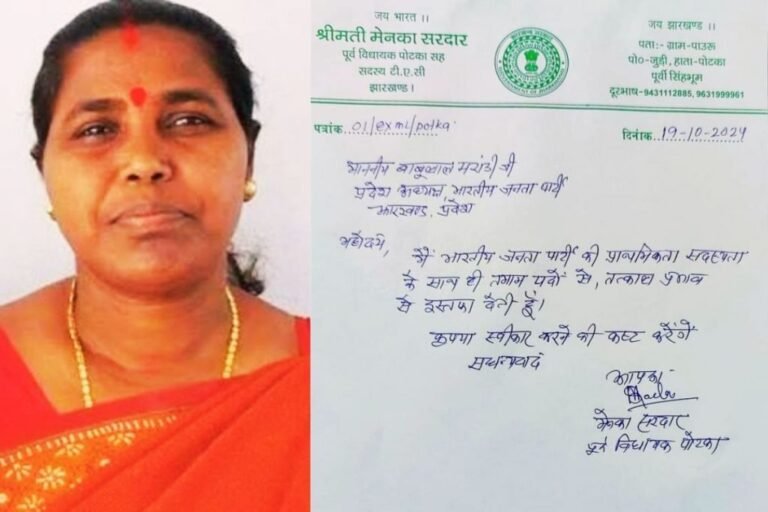 जय भारत ।।
श्रीमती मेनका सरदार
पूर्व विधायक पोटका सह
सदस्य टी.ए.सी
झारखण्ड।
जय झारखण्ड ।।
पता:- ग्राम-पाऊरू
पो०-जुड़ी, हाता-पोटका
पूर्वी सिंहभूम
दूरभाष-9431112885, 9631999961
पत्रांक...01/exml/potka.
दिनांक...19-10-2024
माननीय बाबुलाल मरांडी जी
प्रदेश अध्यक्ष, भारतीय जनता पार्टी
झारखण्ड, प्रदेश
महोदय,
मैं भारतीय जनता पार्टी की प्राथमिकता सदस्यता
के साथ ही तमाम पदों से, तत्काल प्रभाव
से इस्तफा देती हूँ।
कृपया स्वीकार करने की कष्ट करेंगें
सधन्यवाद
आपका
मेनका सरदार
पूर्व विधायक पोटका